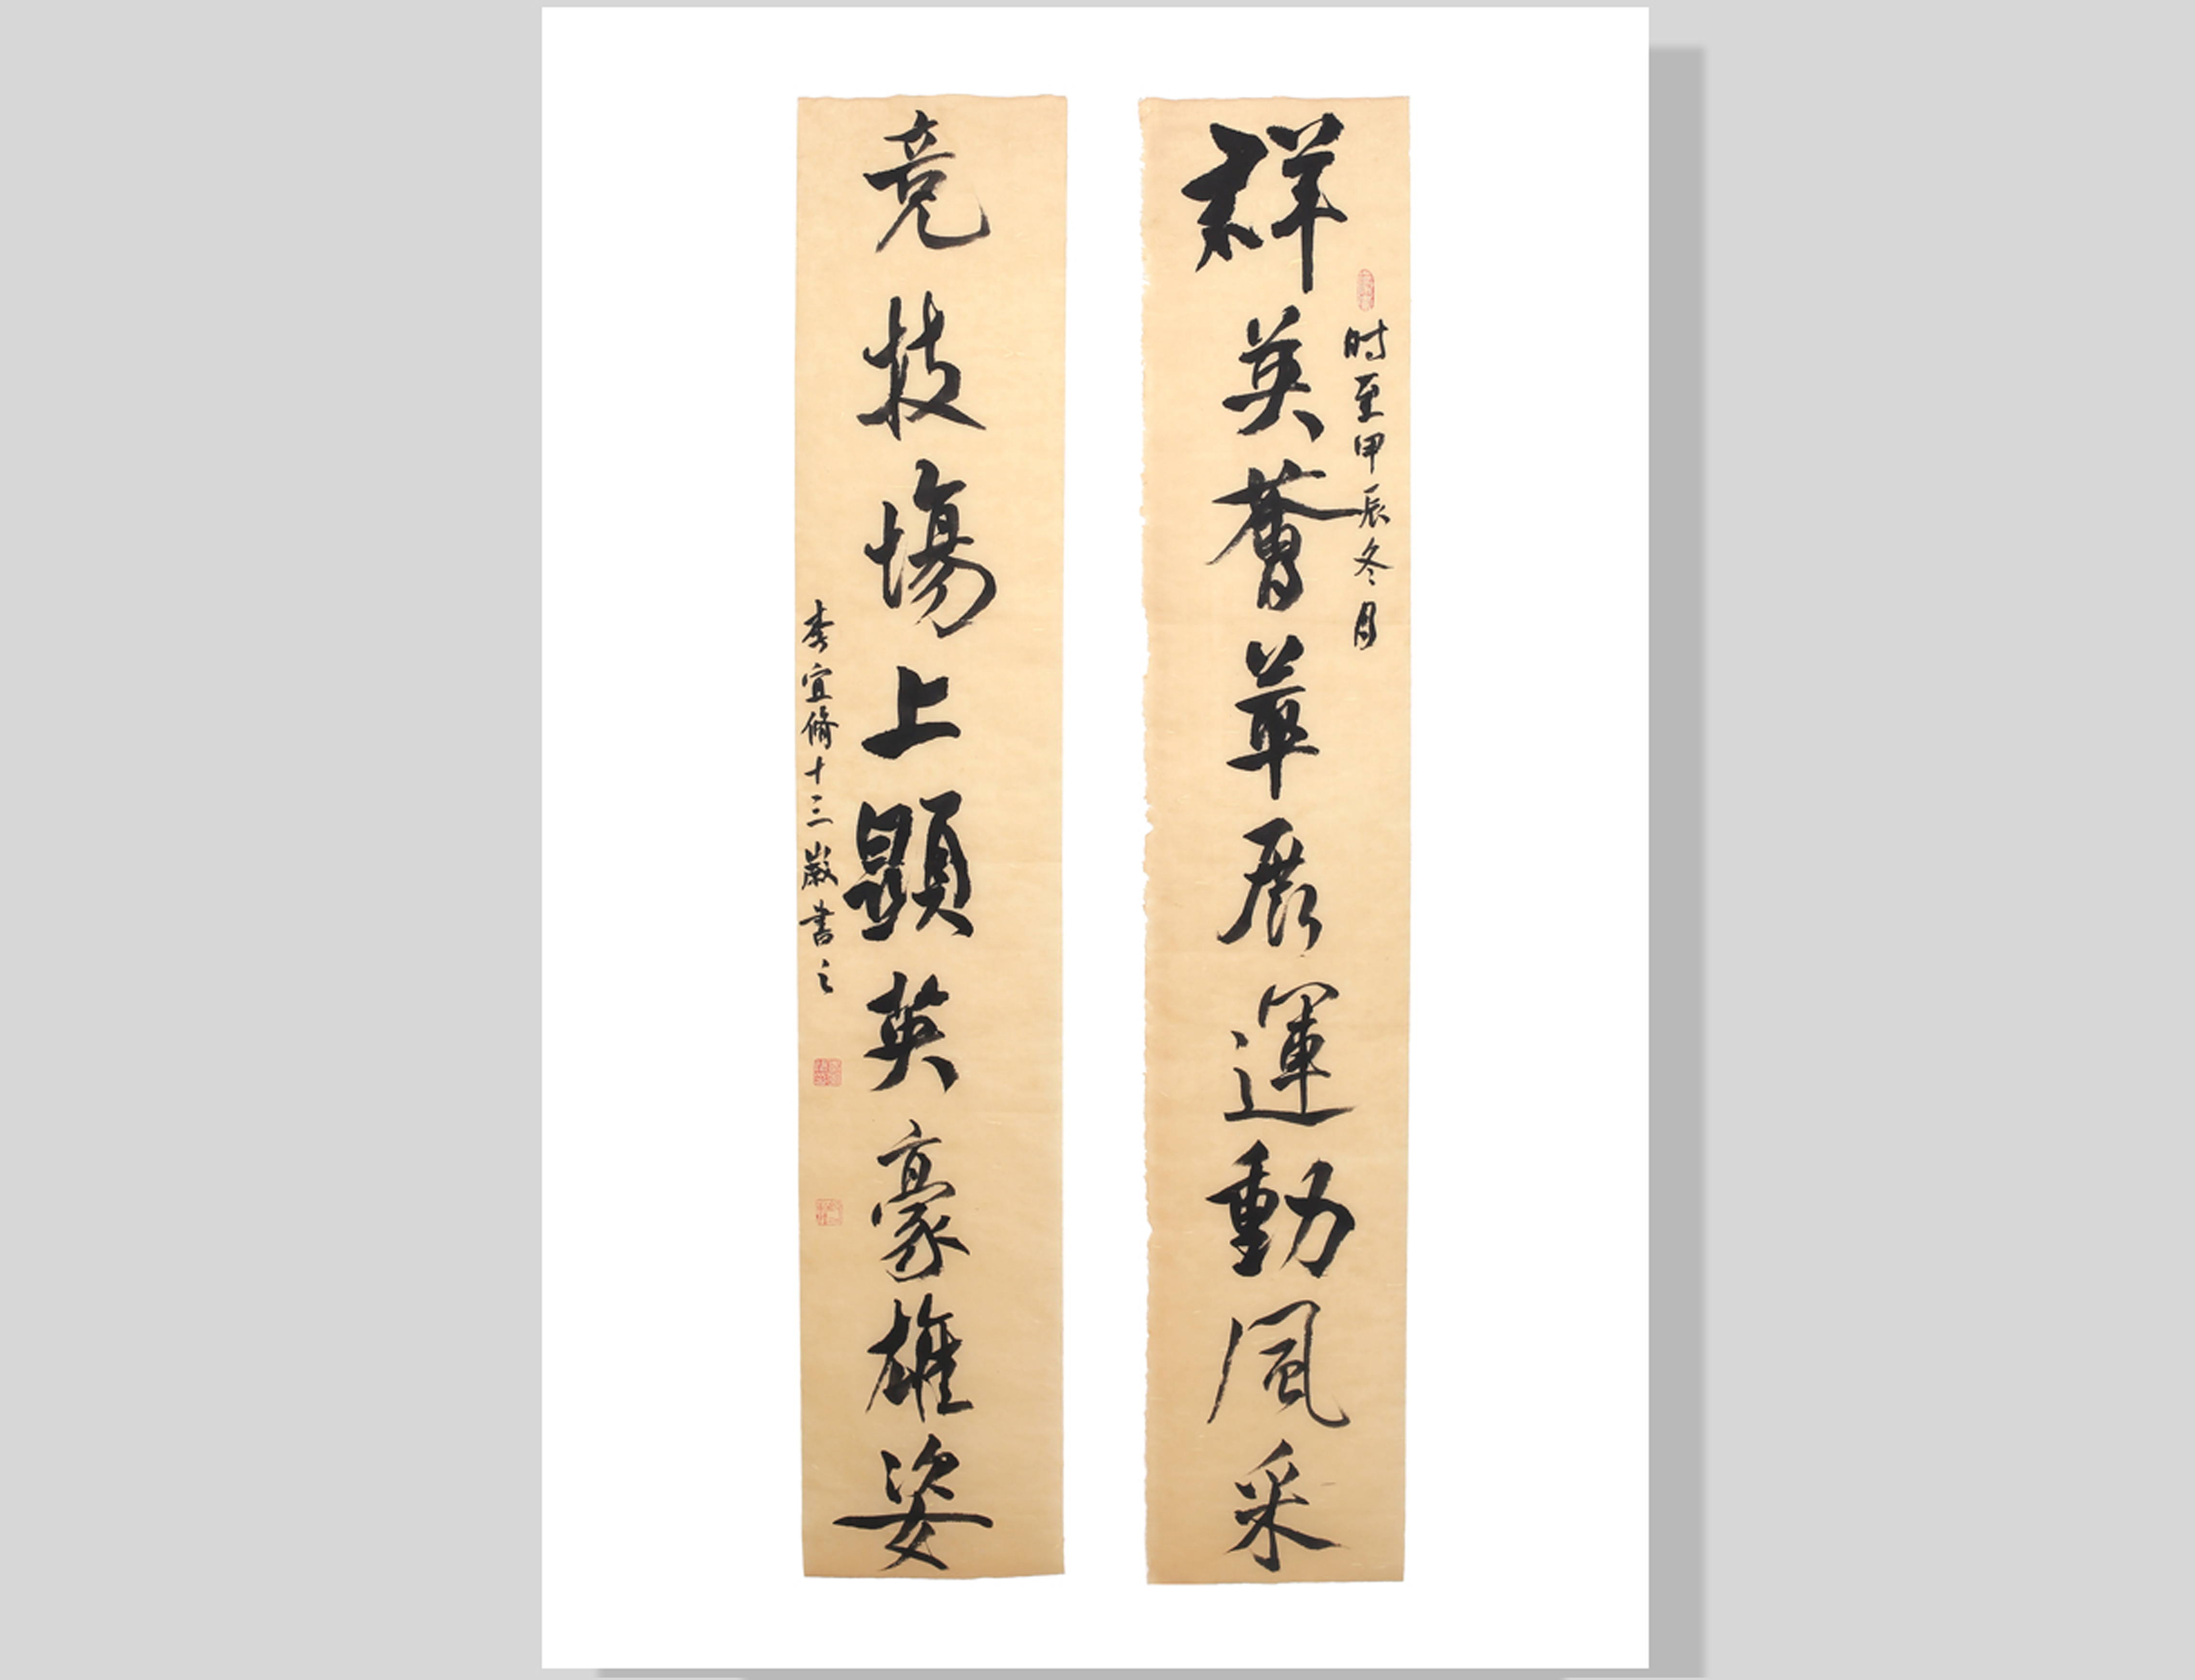 群英薈萃展運動風采
时至甲辰冬月
竞技場上顯英豪雄姿
李宜脩十三嵗書之